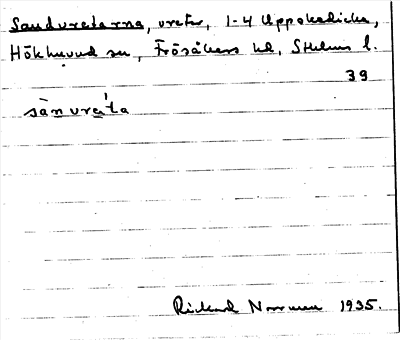 Sandvretarna, vretar, 1-4 Uppskedika,
Hökhuvud sn, Frösåkers hd, Sthlms l.
39
sànvre̍ta
Rickard Norrman 1935.